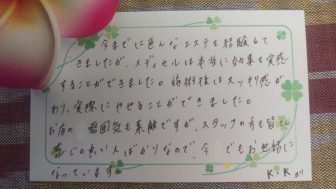 今までに色んなエステを経験して
きましたが、メディセルは本当に効果を実感
することができました。施術後はスッキリ感が
あり、実際にやせることができました。
お店の雰囲気も素敵ですが、スタッフの方も皆さん
感じの良い人ばかりなので、今でもお世話に
なっています。
K.Kより